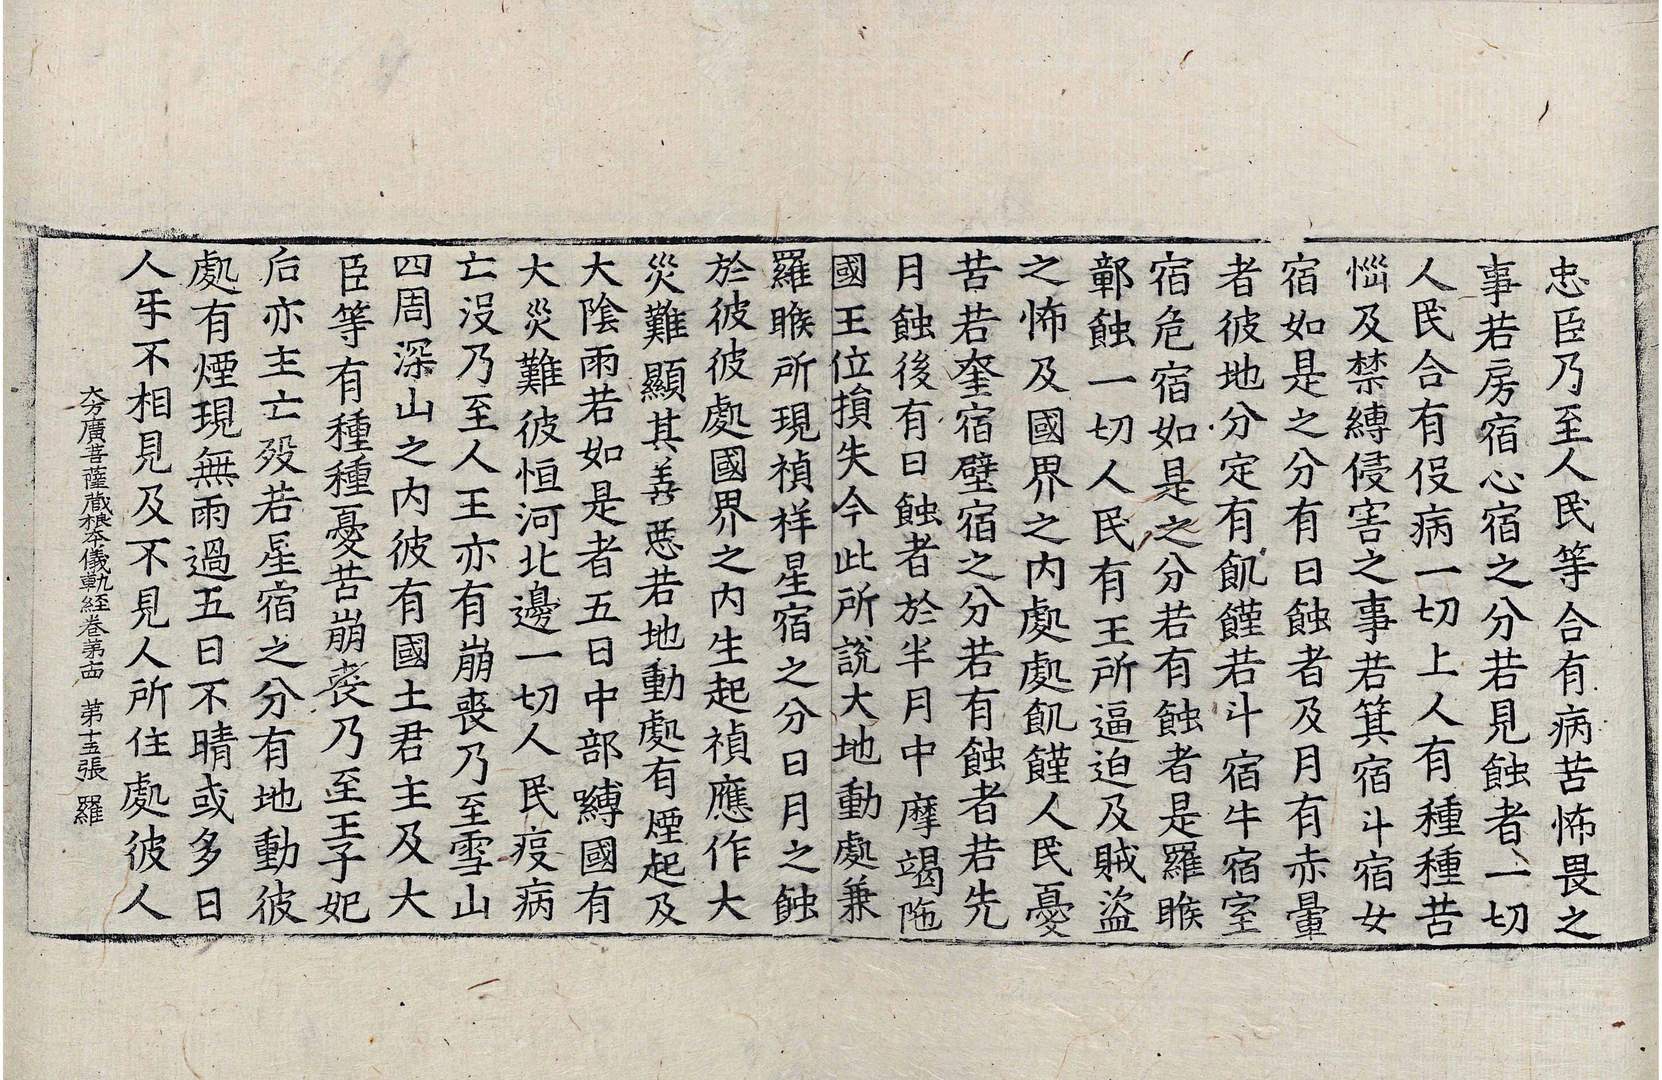 忠臣乃至人民等合有病苦怖畏之
事若房宿心宿之分若見蝕者一切
人民合有伇病一切上人有種種苦
惱及禁縛侵害之事若箕宿斗宿女
宿如是之分有日蝕者及月有赤暈
者彼地分定有飢饉若斗宿牛宿室
宿危宿如是之分若有蝕者是羅睺
鄣蝕一切人民有王所逼迫及賊盜
之怖及國界之內處處飢饉人民憂
苦若奎宿壁宿之分若有蝕者若先
月蝕後有日蝕者於半月中摩竭陁
國王位損失今此所說大地動處兼
羅睺所現禎祥星宿之分日月之蝕
於彼彼處國界之內生起禎應作大
災難顯其善惡若地動處有煙起及
大陰雨若如是者五日中部縛國有
大災難彼恒河北邊一切人民疫病
亡沒乃至人王亦有崩喪乃至雪山
四周深山之內彼有國土君主及大
臣等有種種憂苦崩喪乃至王子妃
后亦主亡歿若星宿之分有地動彼
處有煙現無雨過五日不晴或多日
人㸦不相見及不見人所住處彼人
大方廣菩薩藏根本儀軌経卷第十四 第十五張 羅